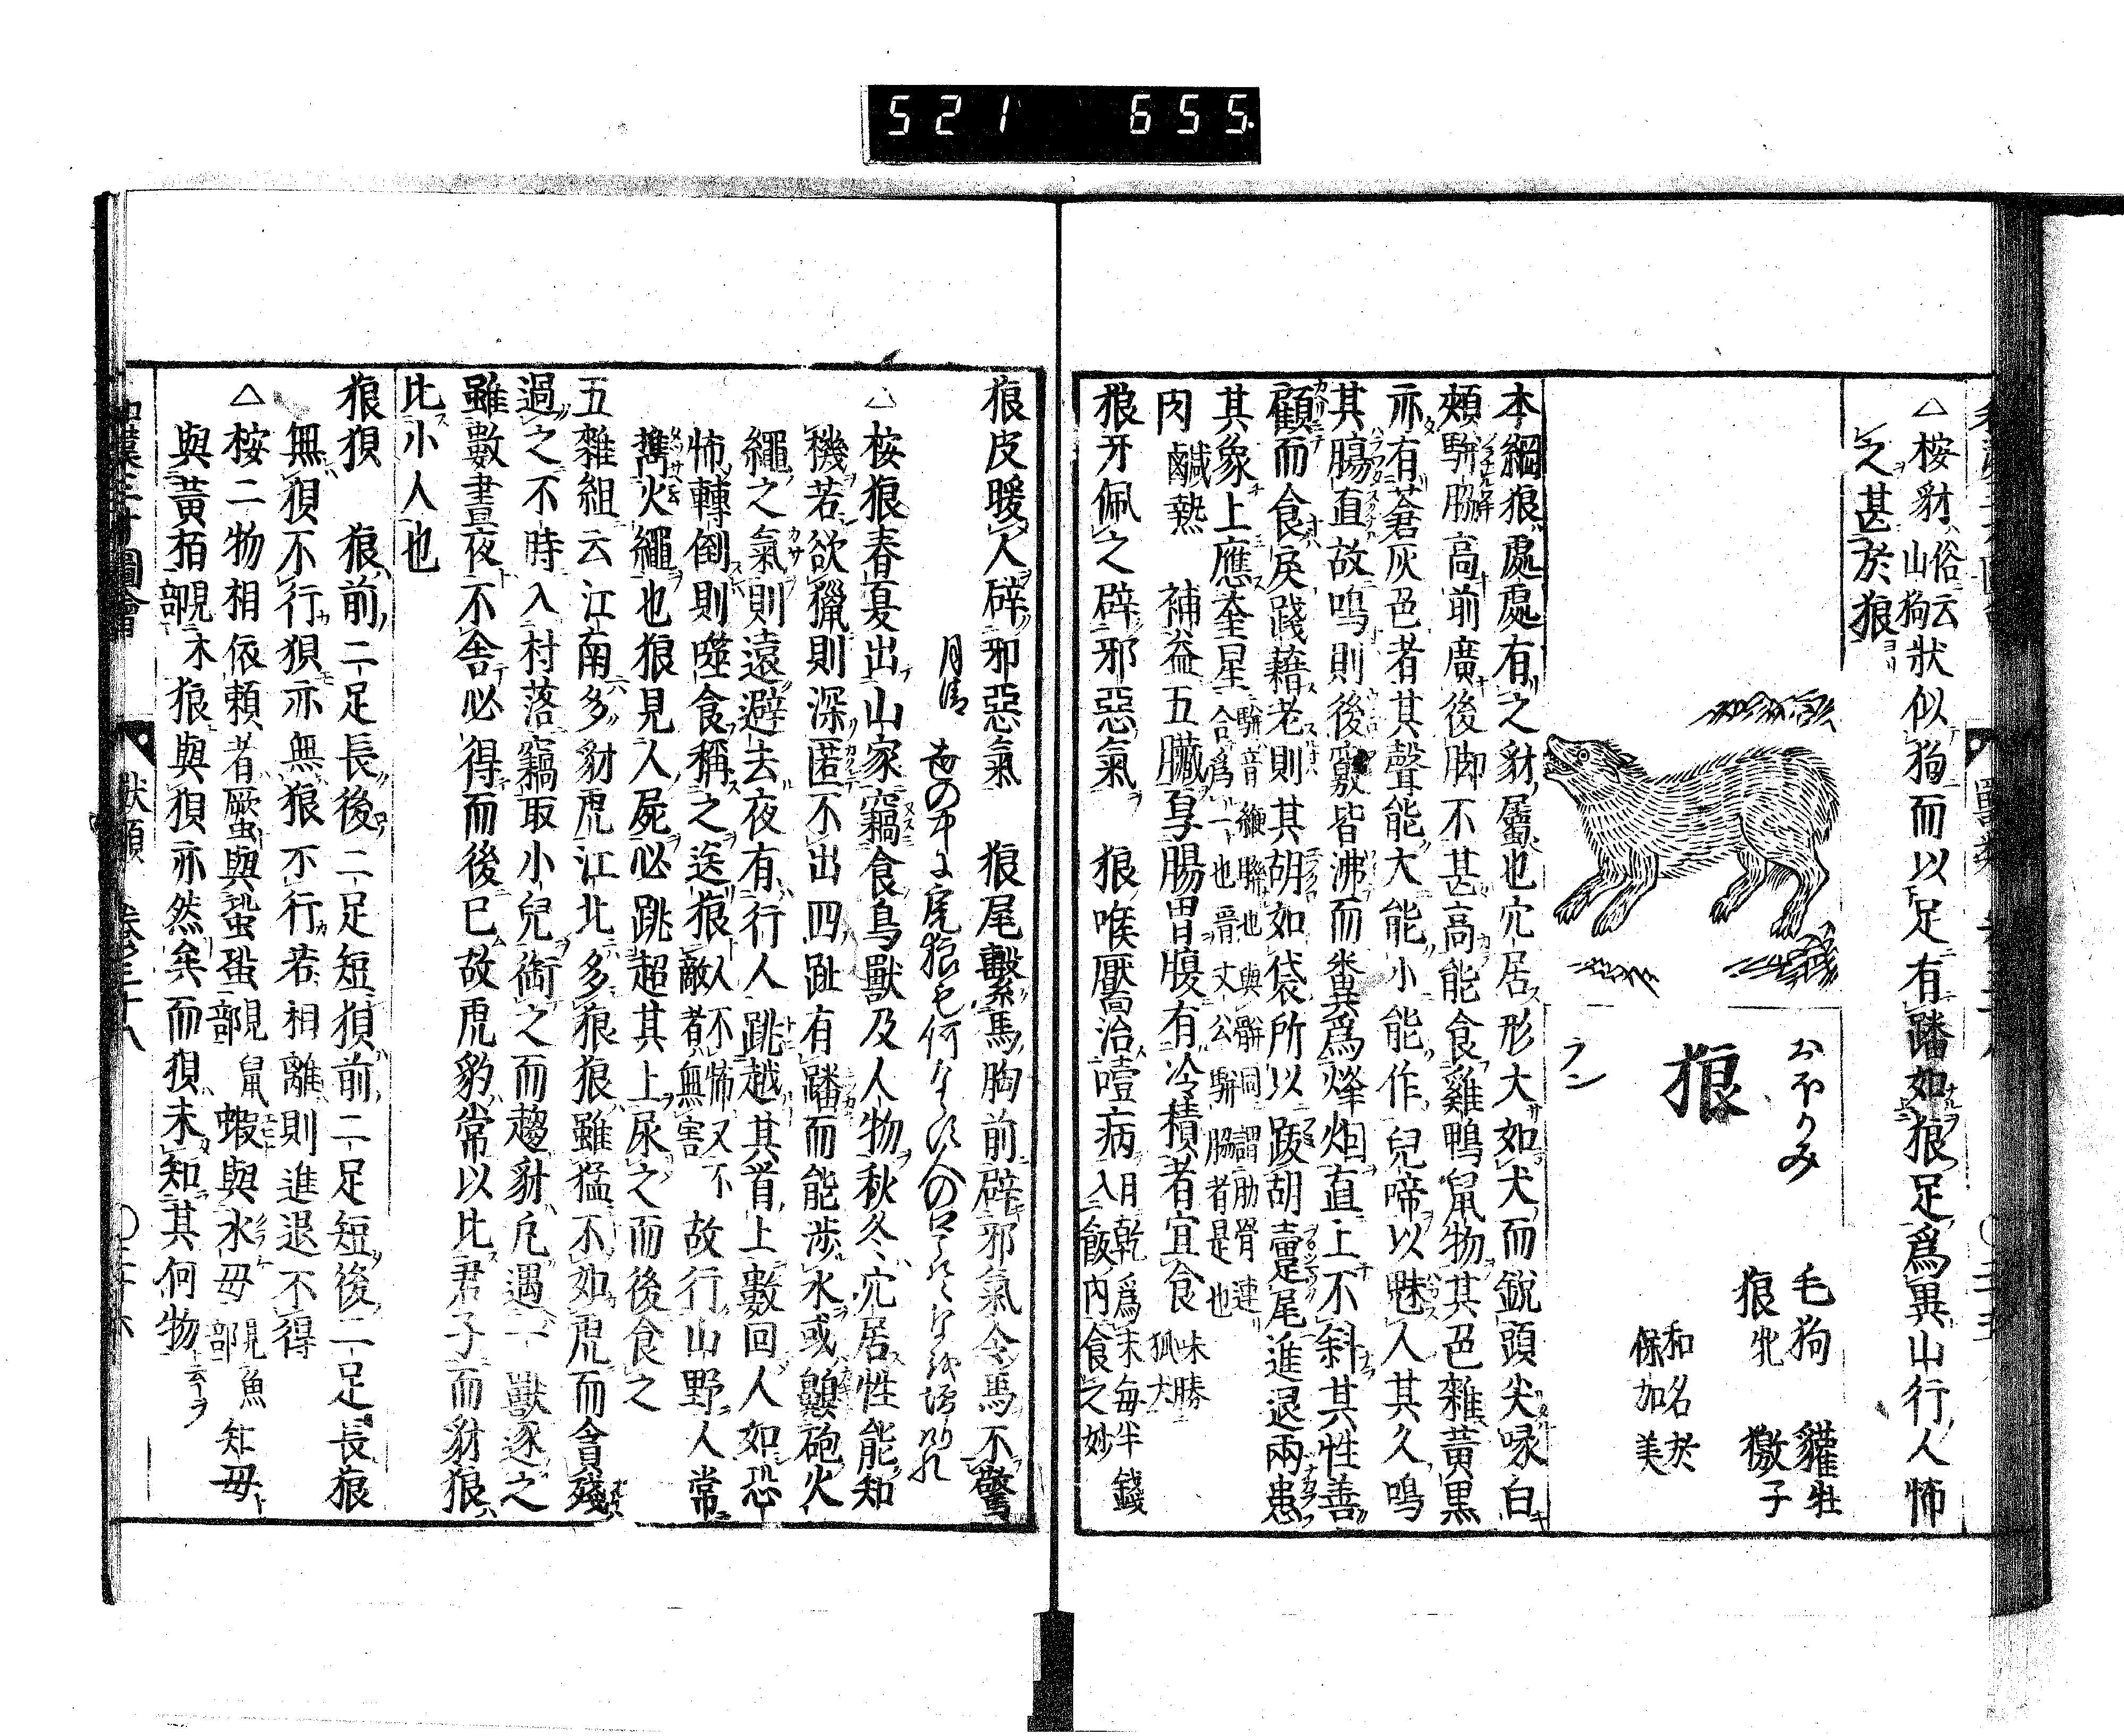 521 655
△桉豺俗云山狗狀似狗而以足有蹯如狼足爲異山行人怖
之甚於狼
おほかみ
狼
ラン
毛狗 獾牡
狼牝 獥子
和名於
保加美
本綱狼處處有之豺屬也穴居形大如犬而銳頭尖喙白
頰駢脇高前廣後脚不甚高能食雞鴨鼠物其色雜黃黒
亦有蒼灰色者其聲能大能小能作兒啼以魅人其久鳴
其膓直故鳴則後竅皆沸而糞爲烽烟直上不斜其性善
顧而食戾踐藉老則其胡如袋所以跋胡疐尾進退兩患
其象上應奎星駢音緶聯也與骿同謂肋骨連合爲一也晋文公駢脇者是也
肉鹹熱 補益五臟厚腸胃腹有冷積者宜食味勝狐犬
狼牙佩之辟邪惡氣 狼喉靨治噎病日乾爲末每半錢入飯内食之妙
狼皮暖人辟邪惡氣 狼尾繫馬胸前辟邪氣令馬不驚
月清
△桉狼春夏出山家竊食鳥獸及人物秋冬穴居性能知
機若欲獵則深匿不出四趾有蹯而能渉水或鷄砲火
繩之氣則遠避去夜有行人跳越其首上數回人如恐
怖轉倒則噬食稱之送狼人不怖又不敵者無害故行山野人常
攜火繩也狼見人屍必跳超其上尿之而後食之
五雜組云江南多豺虎江北多狼狼雖猛不如虎而貪殘
過之不時入村落竊取小兒銜之而趨豺凡遇一獸逐之
雖數晝夜不舍必得而後已故虎豹常以比君子而豺狼
比小人也
狼狽 狼前二足長後二足短狽前二足短後二足長狼
無狽不行狽亦無狼不行若相離則進退不得
△桉二物相依賴者蟨與蛩蛩見鼠部蝦與水母見魚部知母
與黃栢見木部狼與狽亦然矣而狽未知其何物云云